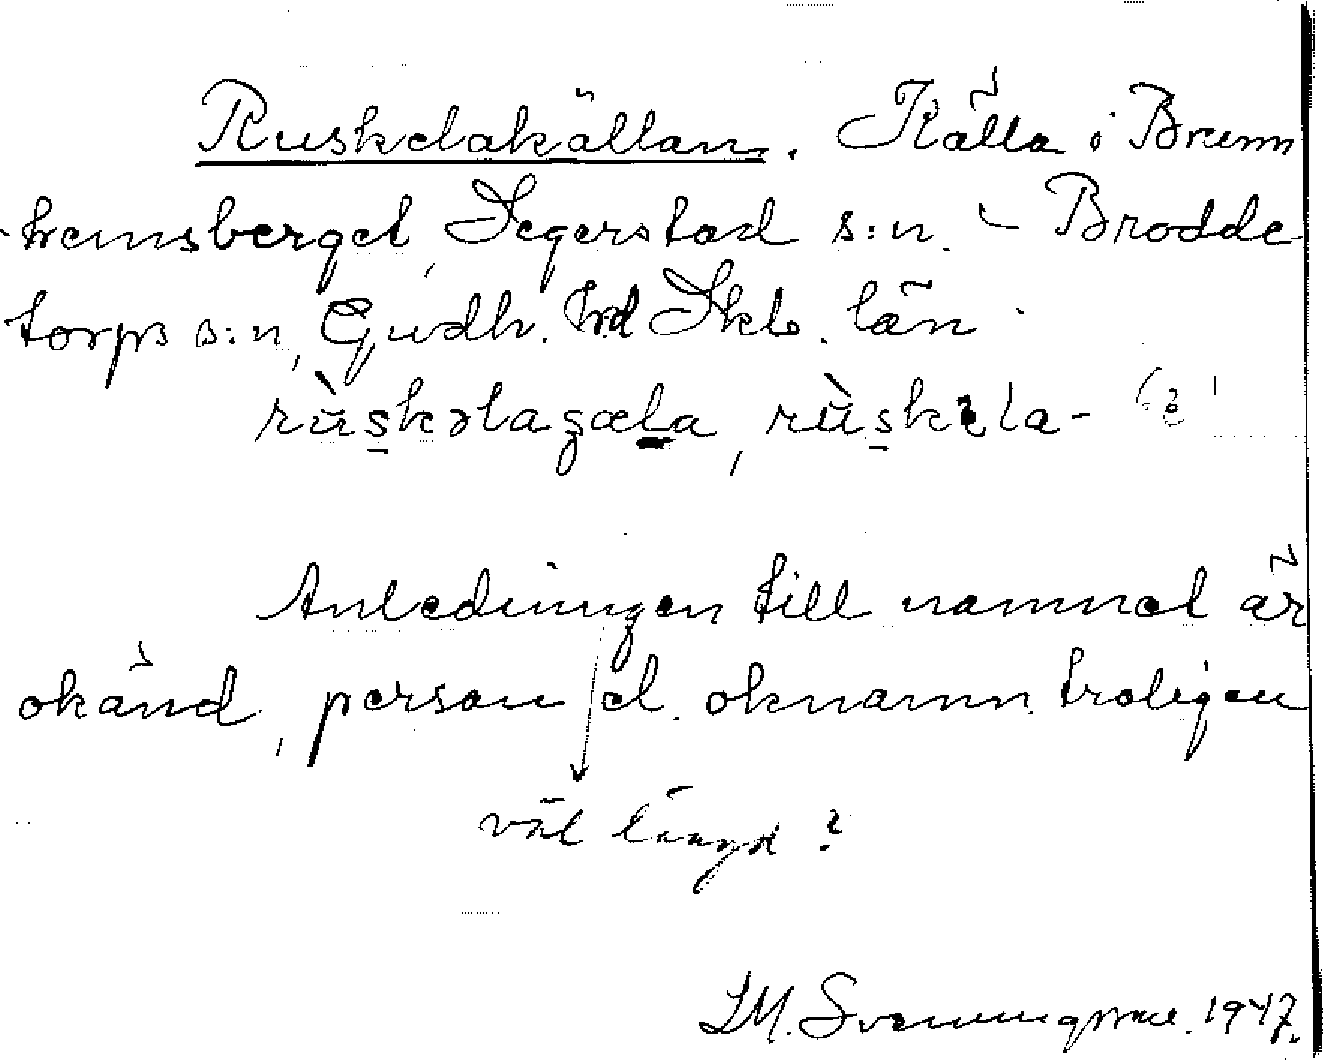 Ruskelakällan. Källa i Brunn
hemsberget, Segerstad s:n. - Brodde
torps s:n, Gudh. hd Skb. län
rùskəlaʒæla, rùskela-
Anledningen till namnet är
okänd, person el. oknamn troligen
väl längd ?
LM. Svenungsson. 1947.